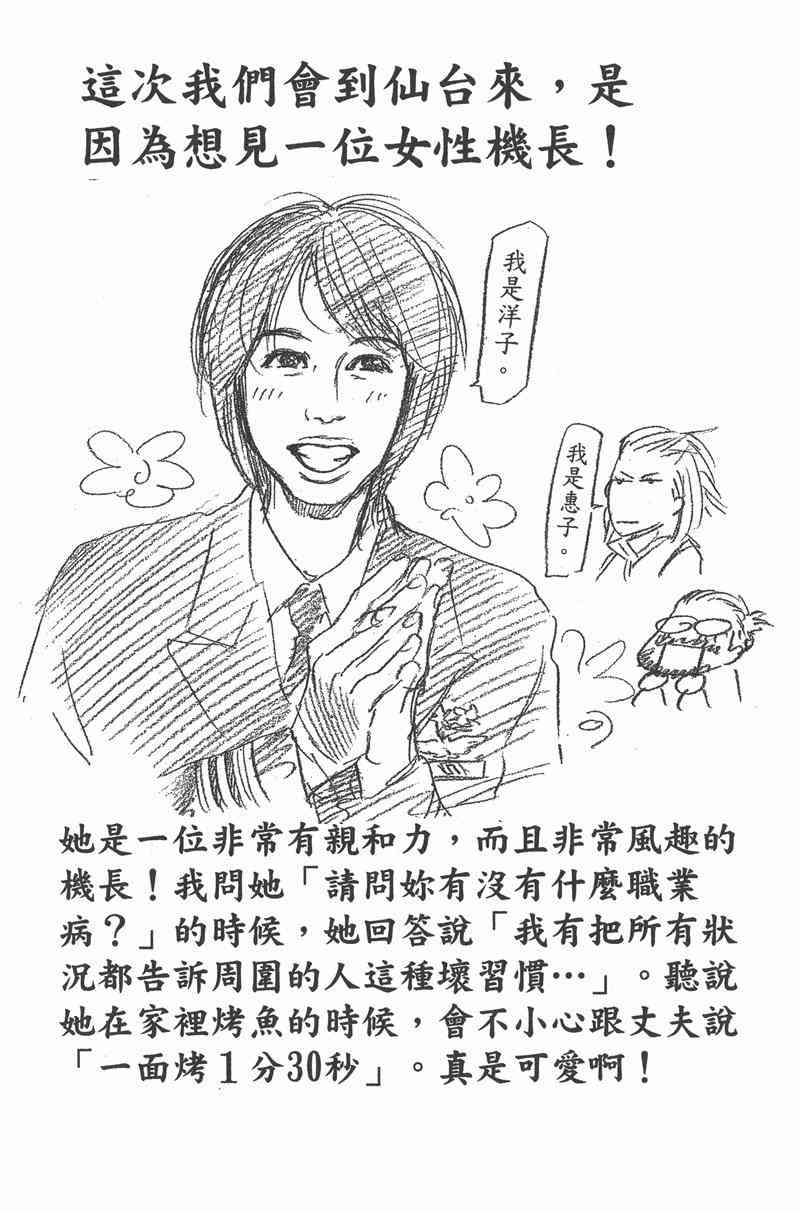 這次我們會到仙台來，是
因為想見一位女性機長！
我是洋子。
我是惠子。
她是一位非常有親和力，而且非常風趣的
機長！我問她「請問妳有沒有什麼職業
病？」的時候，她回答說「我有把所有狀
況都告訴周圍的人這種壞習慣…」。聽說
她在家裡烤魚的時候，會不小心跟丈夫說
「一面烤１分30秒」。真是可愛啊！